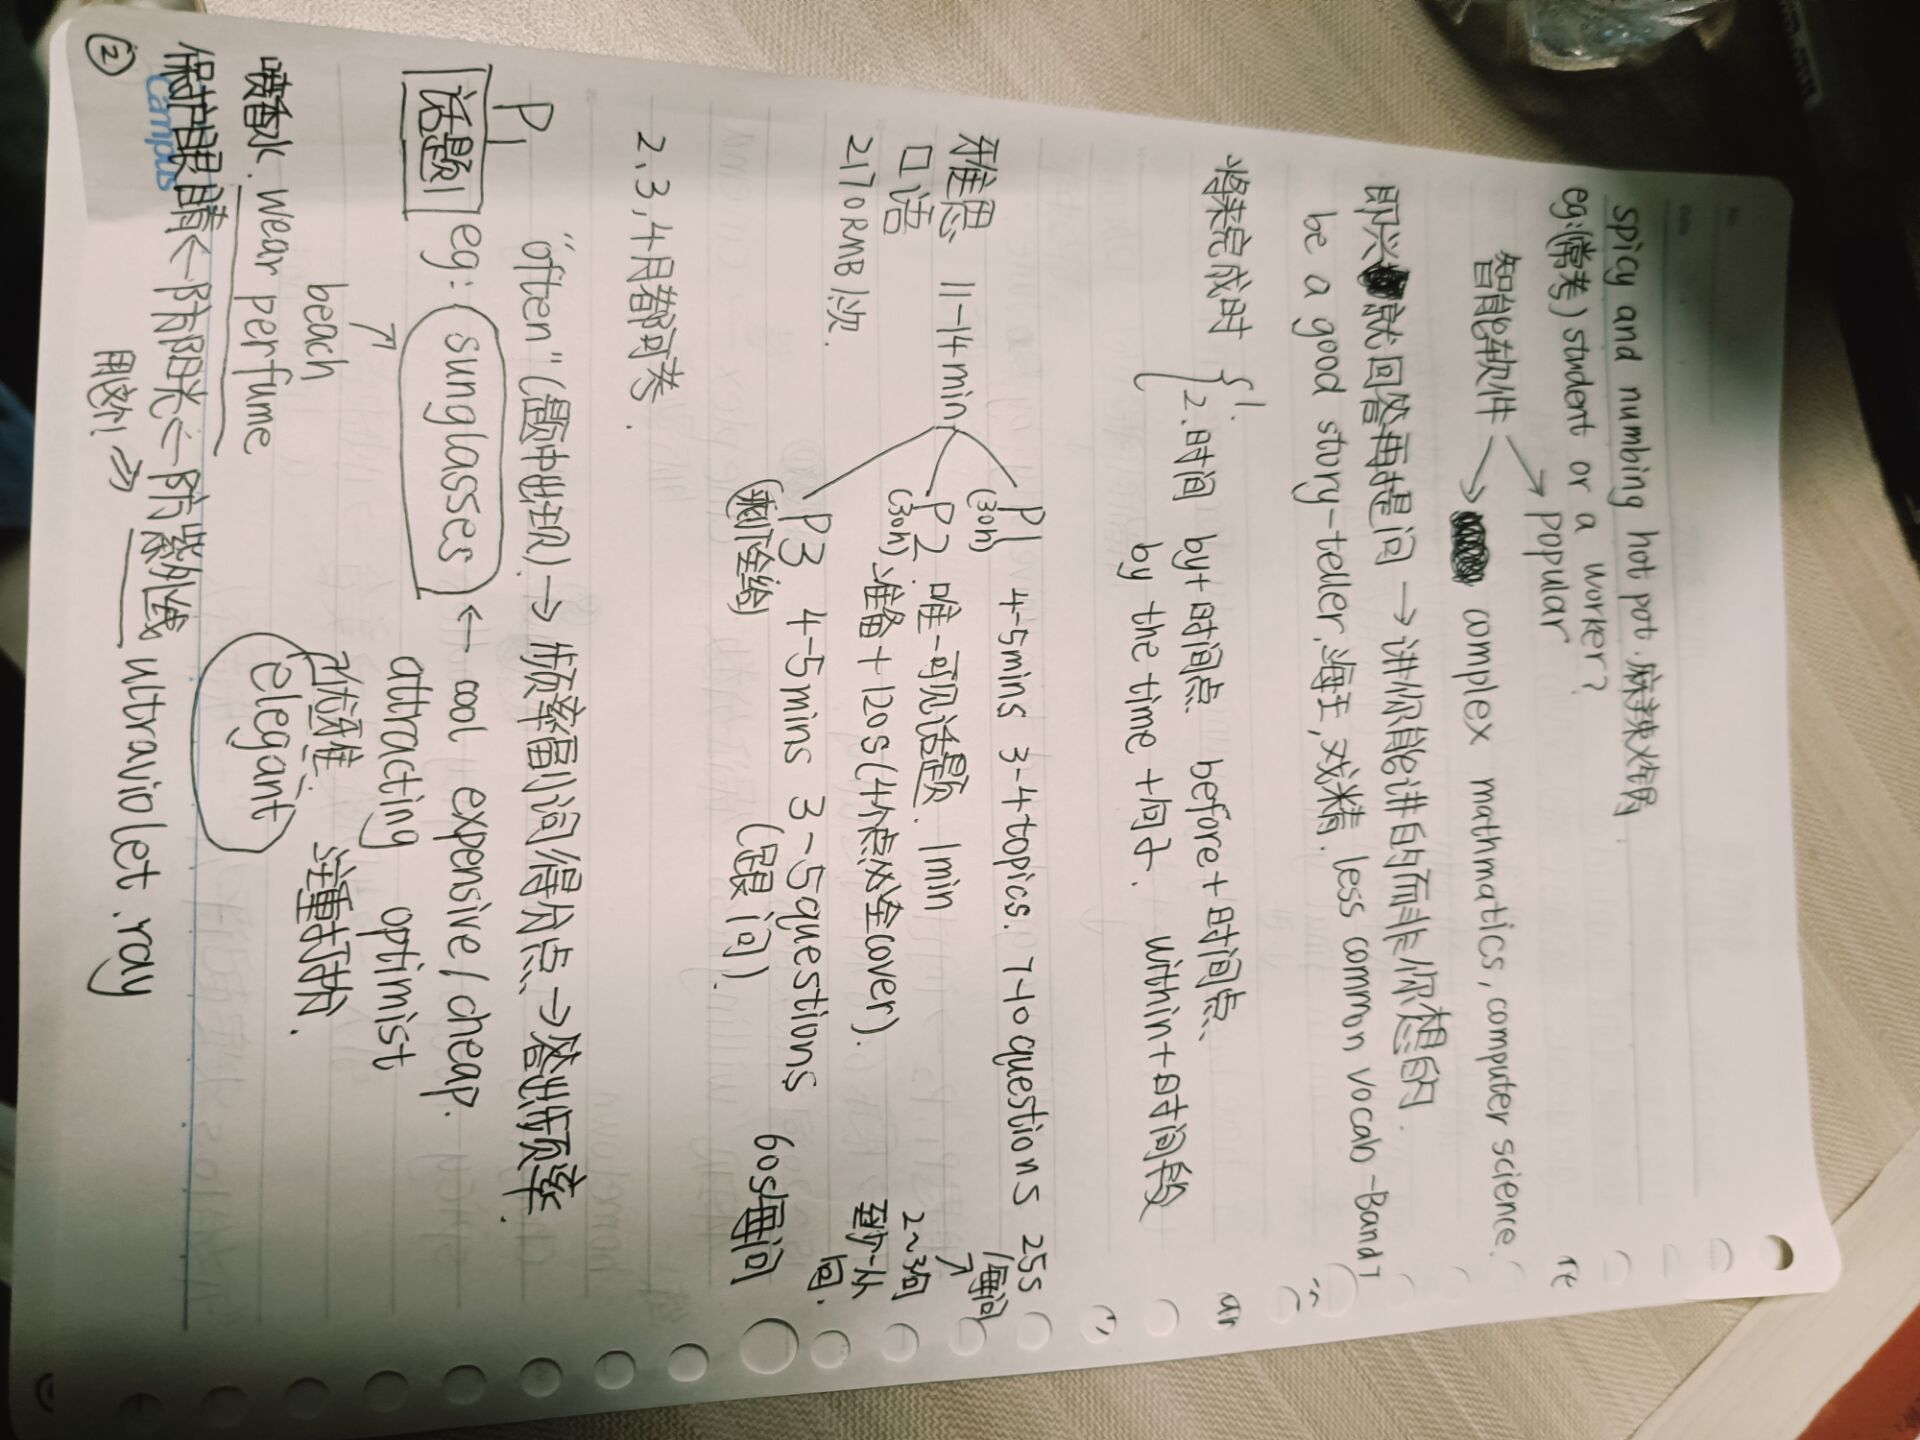 spicy and numbing hot pot. 麻辣火锅.
eg:(常考) student or a worker?
智能软件 → popular
→ complex mathmatics, computer science.
即兴就回答再提问 → 讲你能讲的而非你想的.
be a good story-teller, 海王, 戏精. less common vocab - Band 7
将来完成时 { 1.
2. 时间 by+时间点. before+时间点.
by the time + 句子. within+时间段
雅思 口语 11-14min
2170RMB/次.
P1 (30h) 4-5mins 3-4topics. 7-10 questions 25s/每问
P2 (30h) 唯一可见话题. 1min
准备+120s(4个点必全cover).
2~3句
P3 (剩下全给) 4-5mins 3-5questions (跟1问). 60s/每问
2、3、4月都可考.
P1 "often" (题中出现) → 频率副词/得分点 → 答出频率.
话题 eg: sunglasses ← cool expensive/cheap.
beach
attracting optimist
优雅: elegant
注重打扮.
喷香水. wear perfume
保护眼睛 ← 防阳光 ← 防紫外线 ultraviolet ray
用教外 ⇒
②
Campus